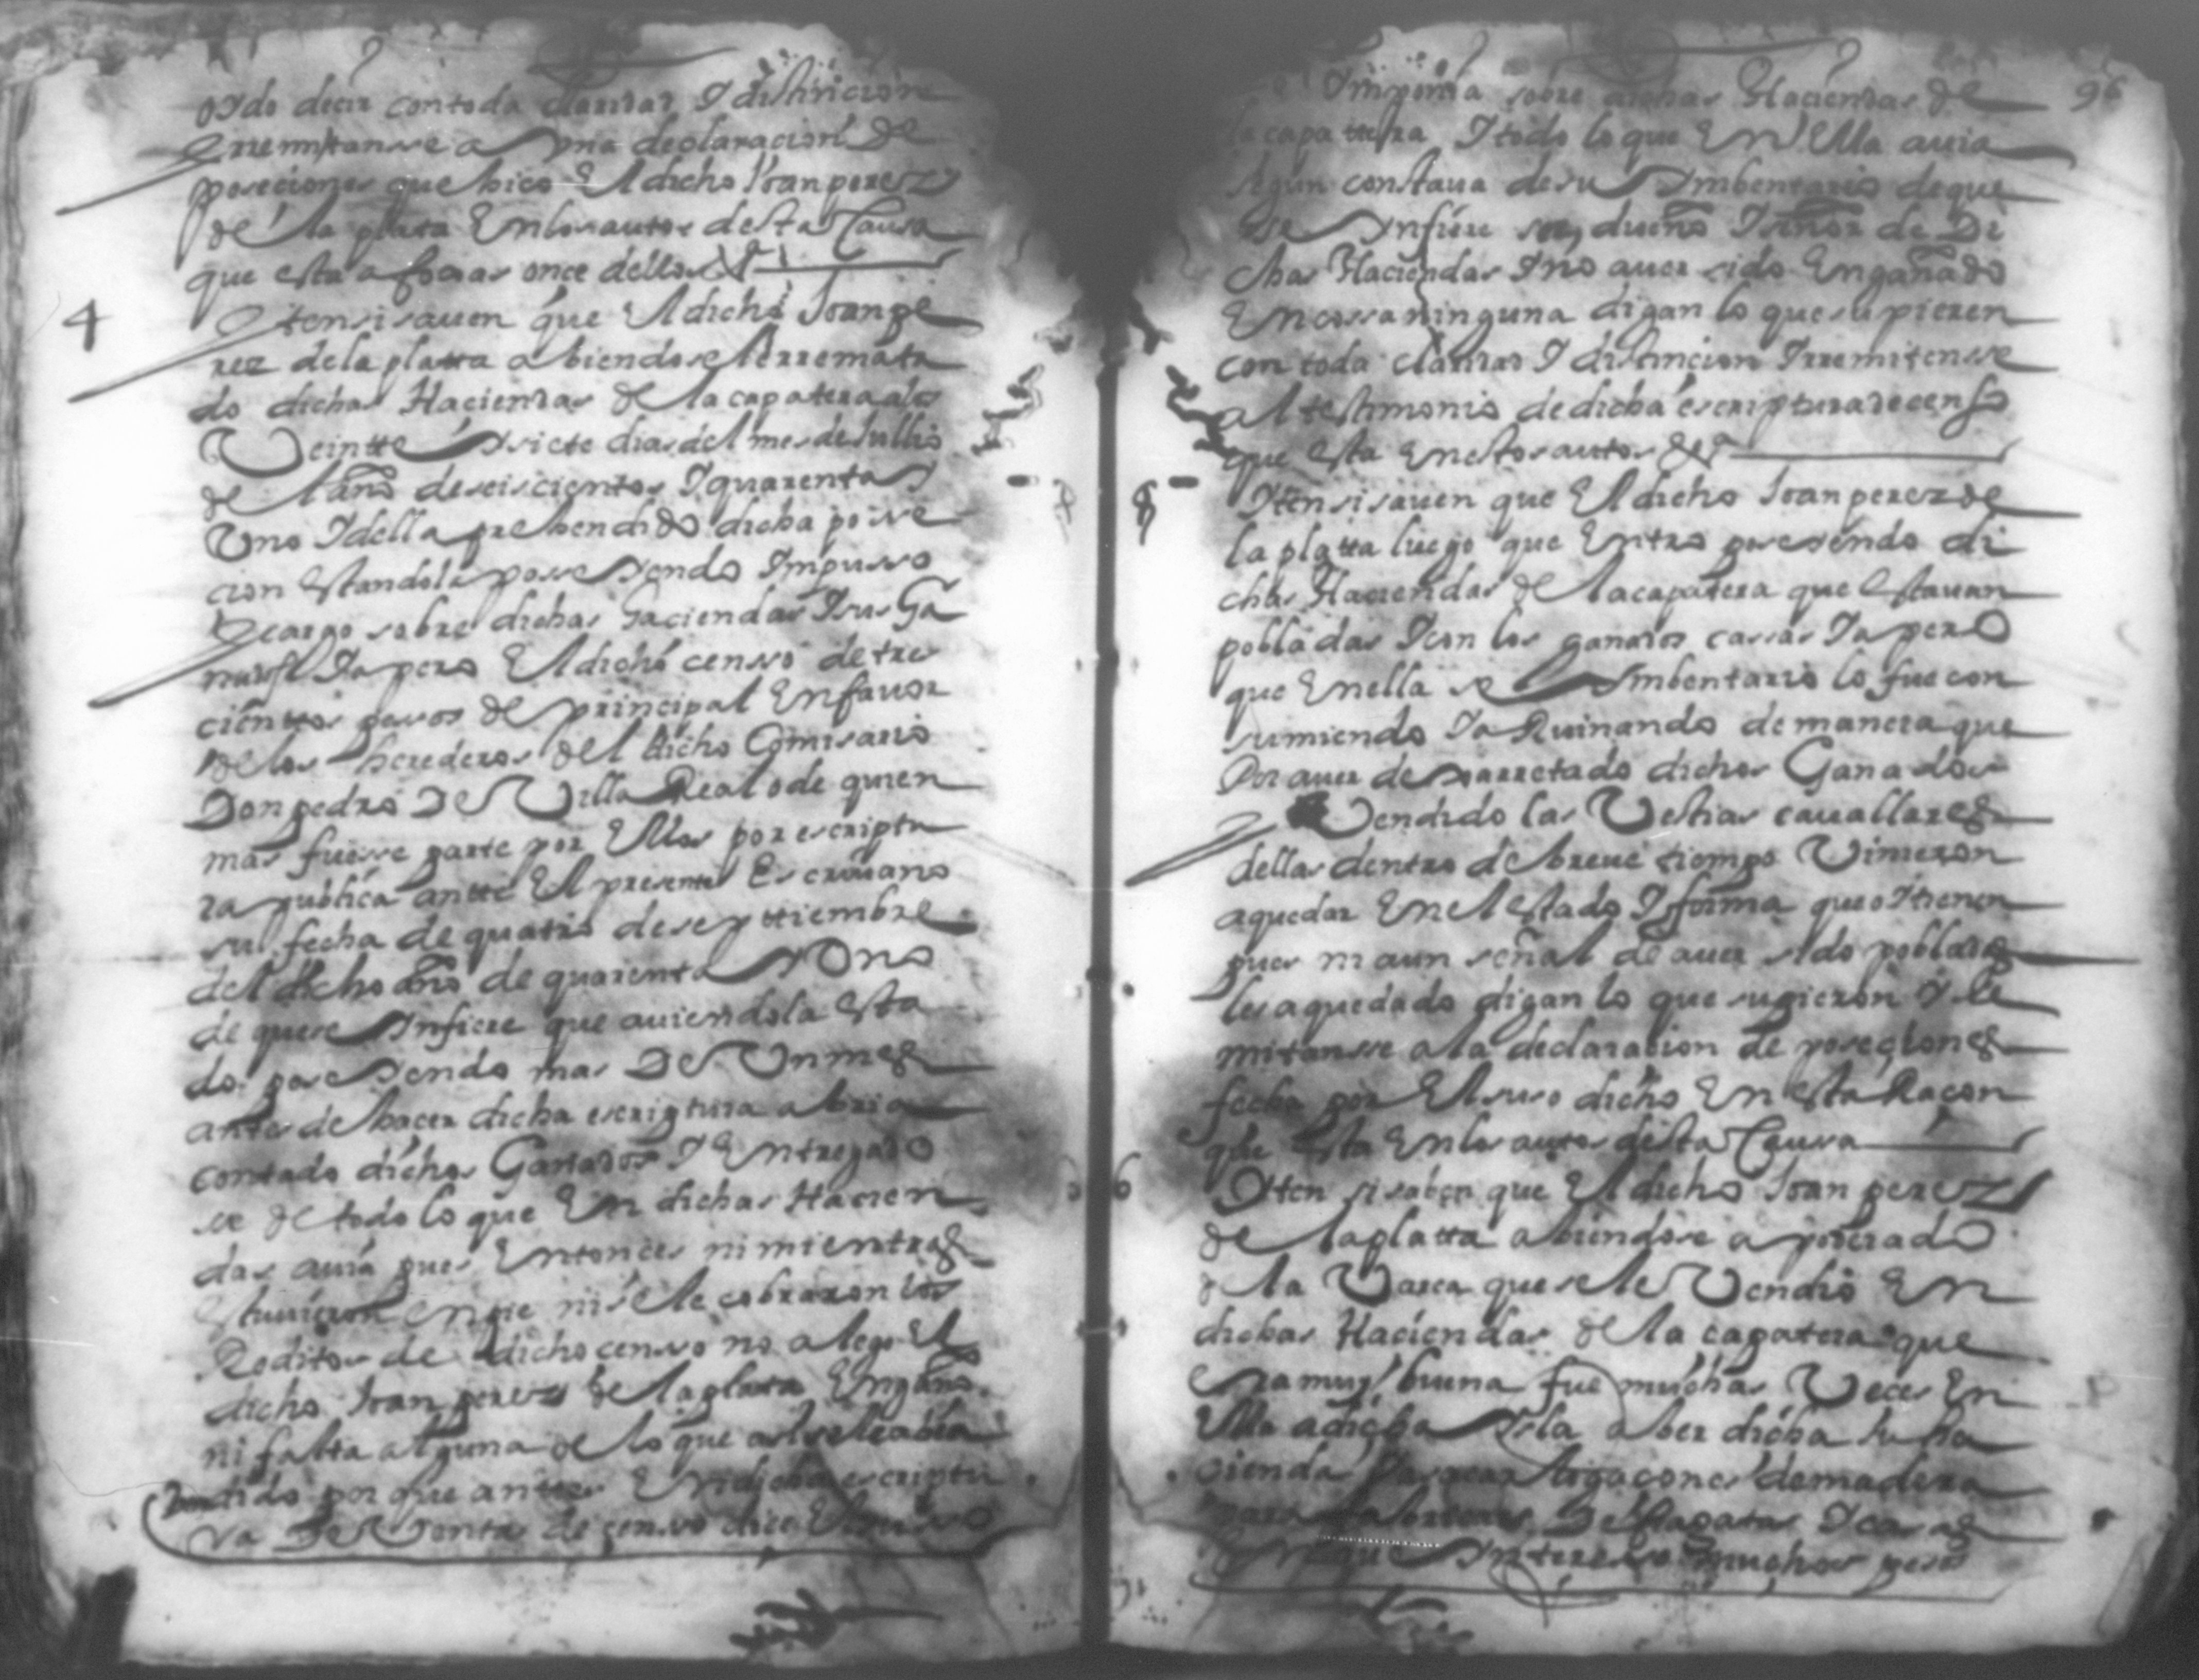 oydo decir con toda claridad Y distincion
Y rremitanse a la declaracion de
posiciones que hico El dicho Joan perez
de la plata En los autos desta Caussa
que esta a foxas once dellos
4 Yten si sauen que El dicho Joan pe
rez de la platta abiendosele rremata
do dichas Haciendas de la capatera a los
Veintte Y siete dias del mes de Jullio
de l año de seiscientos Y quarenta Y
Vno Y della prehendido dicha posse
cion Estandola posseyendo Ympusso
Y cargo sobre dichas haciendas Y sus Ga
nados Y apero El dicho censso de tres
cienttos pessos de principal En fauor
de los herederos del dicho Comisario
Don pedro De Villa Real o de quien
mas fuesse parte por Ellos por escriptu
ra publica antte El presente Escriuano
su fecha de quatro de septtiembre
del dicho año de quarenta Y Vno
de que se Ynfiere que auiendola Esta
do poseyendo mas De Vn mes
antes de hacer dicha escriptura abria
contado dichos Ganados Y Entregado
se de todo lo que En dichas Hacien
das auia pues Entonces ni mientras
Estuuieron en pie ni se le cobraron los
Reditos de dicho censso no alego El
dicho Joan perez de la plata Engaño
ni falta alguna de lo que asi se le abia
Vendido por que antes En dicha escriptu
ra De Venta de censso dice
96
Ymponia sobre dichas Haciendas de
la capattera Y todo lo que En Ella auia
segun constaua de su Ymbentario de que
se Ynfiere ser dueño Y señor de Di
chas Haciendas Y no auer sido Engañado
En cossa ninguna digan lo que supieren
con toda claridad Y distincion Y rremitensse
al testimonio de dicha escriptura de censso
que Esta En estos autos
5 Yten si sauen que El dicho Joan perez de
la platta luego que Entro poseyendo di
chas Haciendas de la capatera que Estauan
pobladas Y con los ganados cassas Y apero
que En ella se Ymbentario lo fue con
sumiendo Y a Ruinando de manera que
Por auer desxarretado dichos Ganados
Y Vendido las Vestias cauallares
dellas dentro de breue tiempo Vinieron
a quedar En el Estado Y forma que oy tienen
pues ni aun señal de auer sido pobladas
les a quedado digan lo que supieren Y re
mitansse a la declaracion de poseciones
fecha por El suso dicho En Esta Racon
que Esta En los autos desta Caussa
6 Yten si saben que El dicho Joan perez
de la platta abiendose apoderado
de la Varca que se le Vendio En
dichas Haciendas de la capatera que
Era muy buena fue muchas Veces En
Ella a dicha Ysla a ber dicha su ha
cienda Y a sacar ligacones de madera
para fabricar De fragatas Y casas
En que Ynteresso muchos pesos